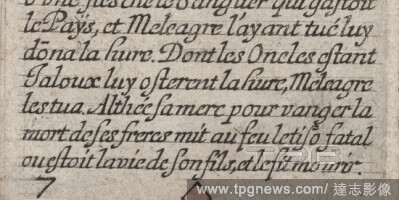 le Païs, et Meleagre l'ayant tué luy
dōna la hure. Dont les Oncles estant
Jaloux luy osterent la hure, Meleagre
les tua. Althée sa mere pour vanger la
mort de ses freres mit au feu le tisō fatal
ou estoit la vie de son fils, et le fit mourir.
7
www.tpgnews.com / 達志影像